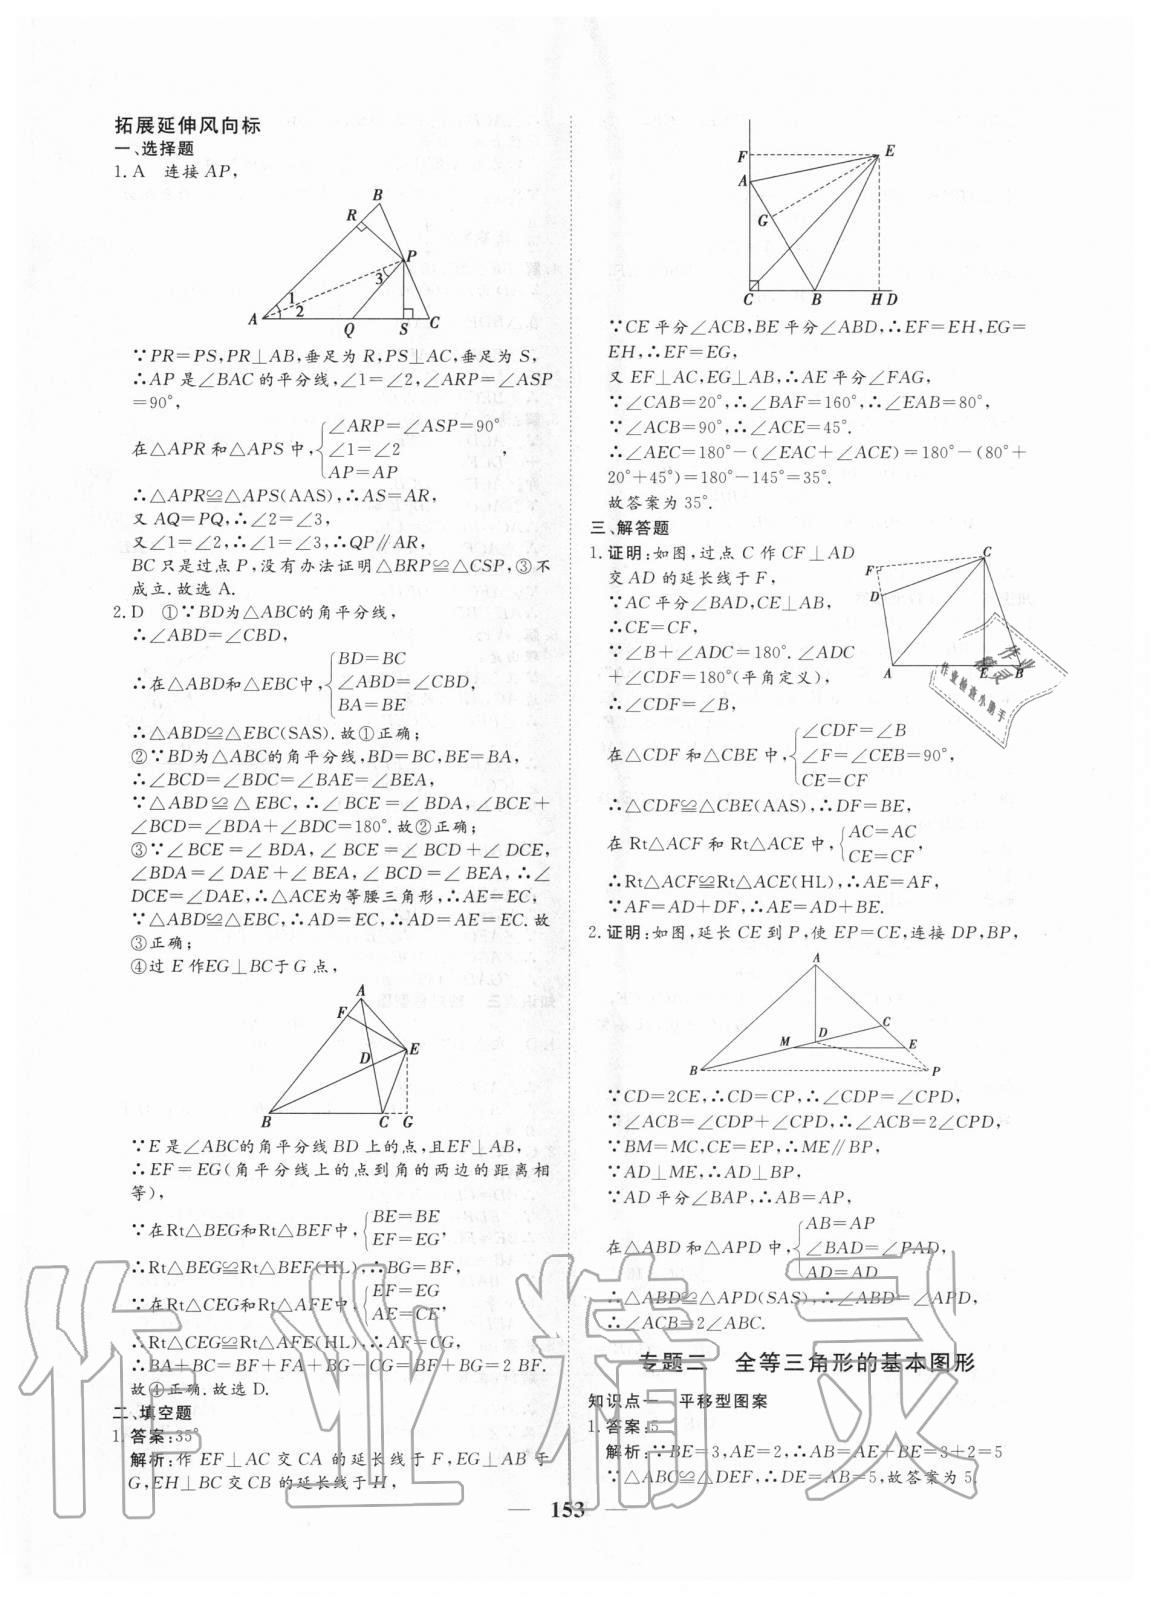 拓展延伸风向标
一、选择题
1. A 连接 AP,
B
R
P
3
1
2
A
Q
S
C
∵PR=PS,PR⊥AB,垂足为 R,PS⊥AC,垂足为 S,
∴AP 是∠BAC 的平分线,∠1=∠2,∠ARP=∠ASP
=90°,
在△APR 和△APS 中,{∠ARP=∠ASP=90°
∠1=∠2
AP=AP ,
∴△APR≌△APS(AAS),∴AS=AR,
又 AQ=PQ,∴∠2=∠3,
又∠1=∠2,∴∠1=∠3,∴QP∥AR,
BC 只是过点 P,没有办法证明△BRP≌△CSP,③不
成立.故选 A.
2. D ①∵BD为△ABC的角平分线,
∴∠ABD=∠CBD,
∴在△ABD和△EBC中,{BD=BC
∠ABD=∠CBD,
BA=BE
∴△ABD≌△EBC(SAS).故①正确;
②∵BD为△ABC的角平分线,BD=BC,BE=BA,
∴∠BCD=∠BDC=∠BAE=∠BEA,
∵△ABD≌△EBC,∴∠BCE=∠BDA,∠BCE+
∠BCD=∠BDA+∠BDC=180°.故②正确;
③∵∠BCE=∠BDA,∠BCE=∠BCD+∠DCE,
∠BDA=∠DAE+∠BEA,∠BCD=∠BEA,∴∠
DCE=∠DAE,∴△ACE为等腰三角形,∴AE=EC,
∵△ABD≌△EBC,∴AD=EC,∴AD=AE=EC.故
③正确;
④过 E 作EG⊥BC于 G 点,
A
F
E
D
B
C
G
∵E 是∠ABC的角平分线 BD 上的点,且EF⊥AB,
∴EF=EG(角平分线上的点到角的两边的距离相
等),
∵在Rt△BEG和Rt△BEF中,{BE=BE
EF=EG,
∴Rt△BEG≌Rt△BEF(HL),∴BG=BF,
∵在Rt△CEG和Rt△AFE中,{EF=EG
AE=CE,
∴Rt△CEG≌Rt△AFE(HL),∴AF=CG,
∴BA+BC=BF+FA+BG-CG=BF+BG=2 BF.
故④正确.故选 D.
二、填空题
1. 答案:35°
解析:作 EF⊥AC 交 CA 的延长线于 F,EG⊥AB 于
G,EH⊥BC 交 CB 的延长线于 H,
F
E
A
G
C
B
H
D
∵CE 平分∠ACB,BE 平分∠ABD,∴EF=EH,EG=
EH,∴EF=EG,
又 EF⊥AC,EG⊥AB,∴AE 平分∠FAG,
∵∠CAB=20°,∴∠BAF=160°,∴∠EAB=80°,
∵∠ACB=90°,∴∠ACE=45°.
∴∠AEC=180°-(∠EAC+∠ACE)=180°-(80°+
20°+45°)=180°-145°=35°.
故答案为 35°.
三、解答题
1. 证明:如图,过点 C 作 CF⊥AD
交 AD 的延长线于 F,
∵AC 平分∠BAD,CE⊥AB,
∴CE=CF,
∵∠B+∠ADC=180°.∠ADC
+∠CDF=180°(平角定义),
∴∠CDF=∠B,
C
F
D
A
E
B
作业精灵
作业检查小助手
在△CDF 和△CBE 中,{∠CDF=∠B
∠F=∠CEB=90°,
CE=CF
∴△CDF≌△CBE(AAS),∴DF=BE,
在 Rt△ACF 和 Rt△ACE 中,{AC=AC
CE=CF,
∴Rt△ACF≌Rt△ACE(HL),∴AE=AF,
∵AF=AD+DF,∴AE=AD+BE.
2. 证明:如图,延长 CE 到 P,使 EP=CE,连接 DP,BP,
A
C
D
M
E
B
P
∵CD=2CE,∴CD=CP,∴∠CDP=∠CPD,
∵∠ACB=∠CDP+∠CPD,∴∠ACB=2∠CPD,
∵BM=MC,CE=EP,∴ME∥BP,
∵AD⊥ME,∴AD⊥BP,
∵AD 平分∠BAP,∴AB=AP,
在△ABD 和△APD 中,{AB=AP
∠BAD=∠PAD,
AD=AD
∴△ABD≌△APD(SAS),∴∠ABD=∠APD,
∴∠ACB=2∠ABC.
专题二 全等三角形的基本图形
知识点一 平移型图案
1. 答案:5
解析:∵BE=3,AE=2,∴AB=AE+BE=3+2=5
∵△ABC≌△DEF,∴DE=AB=5,故答案为 5.
153
作业精灵